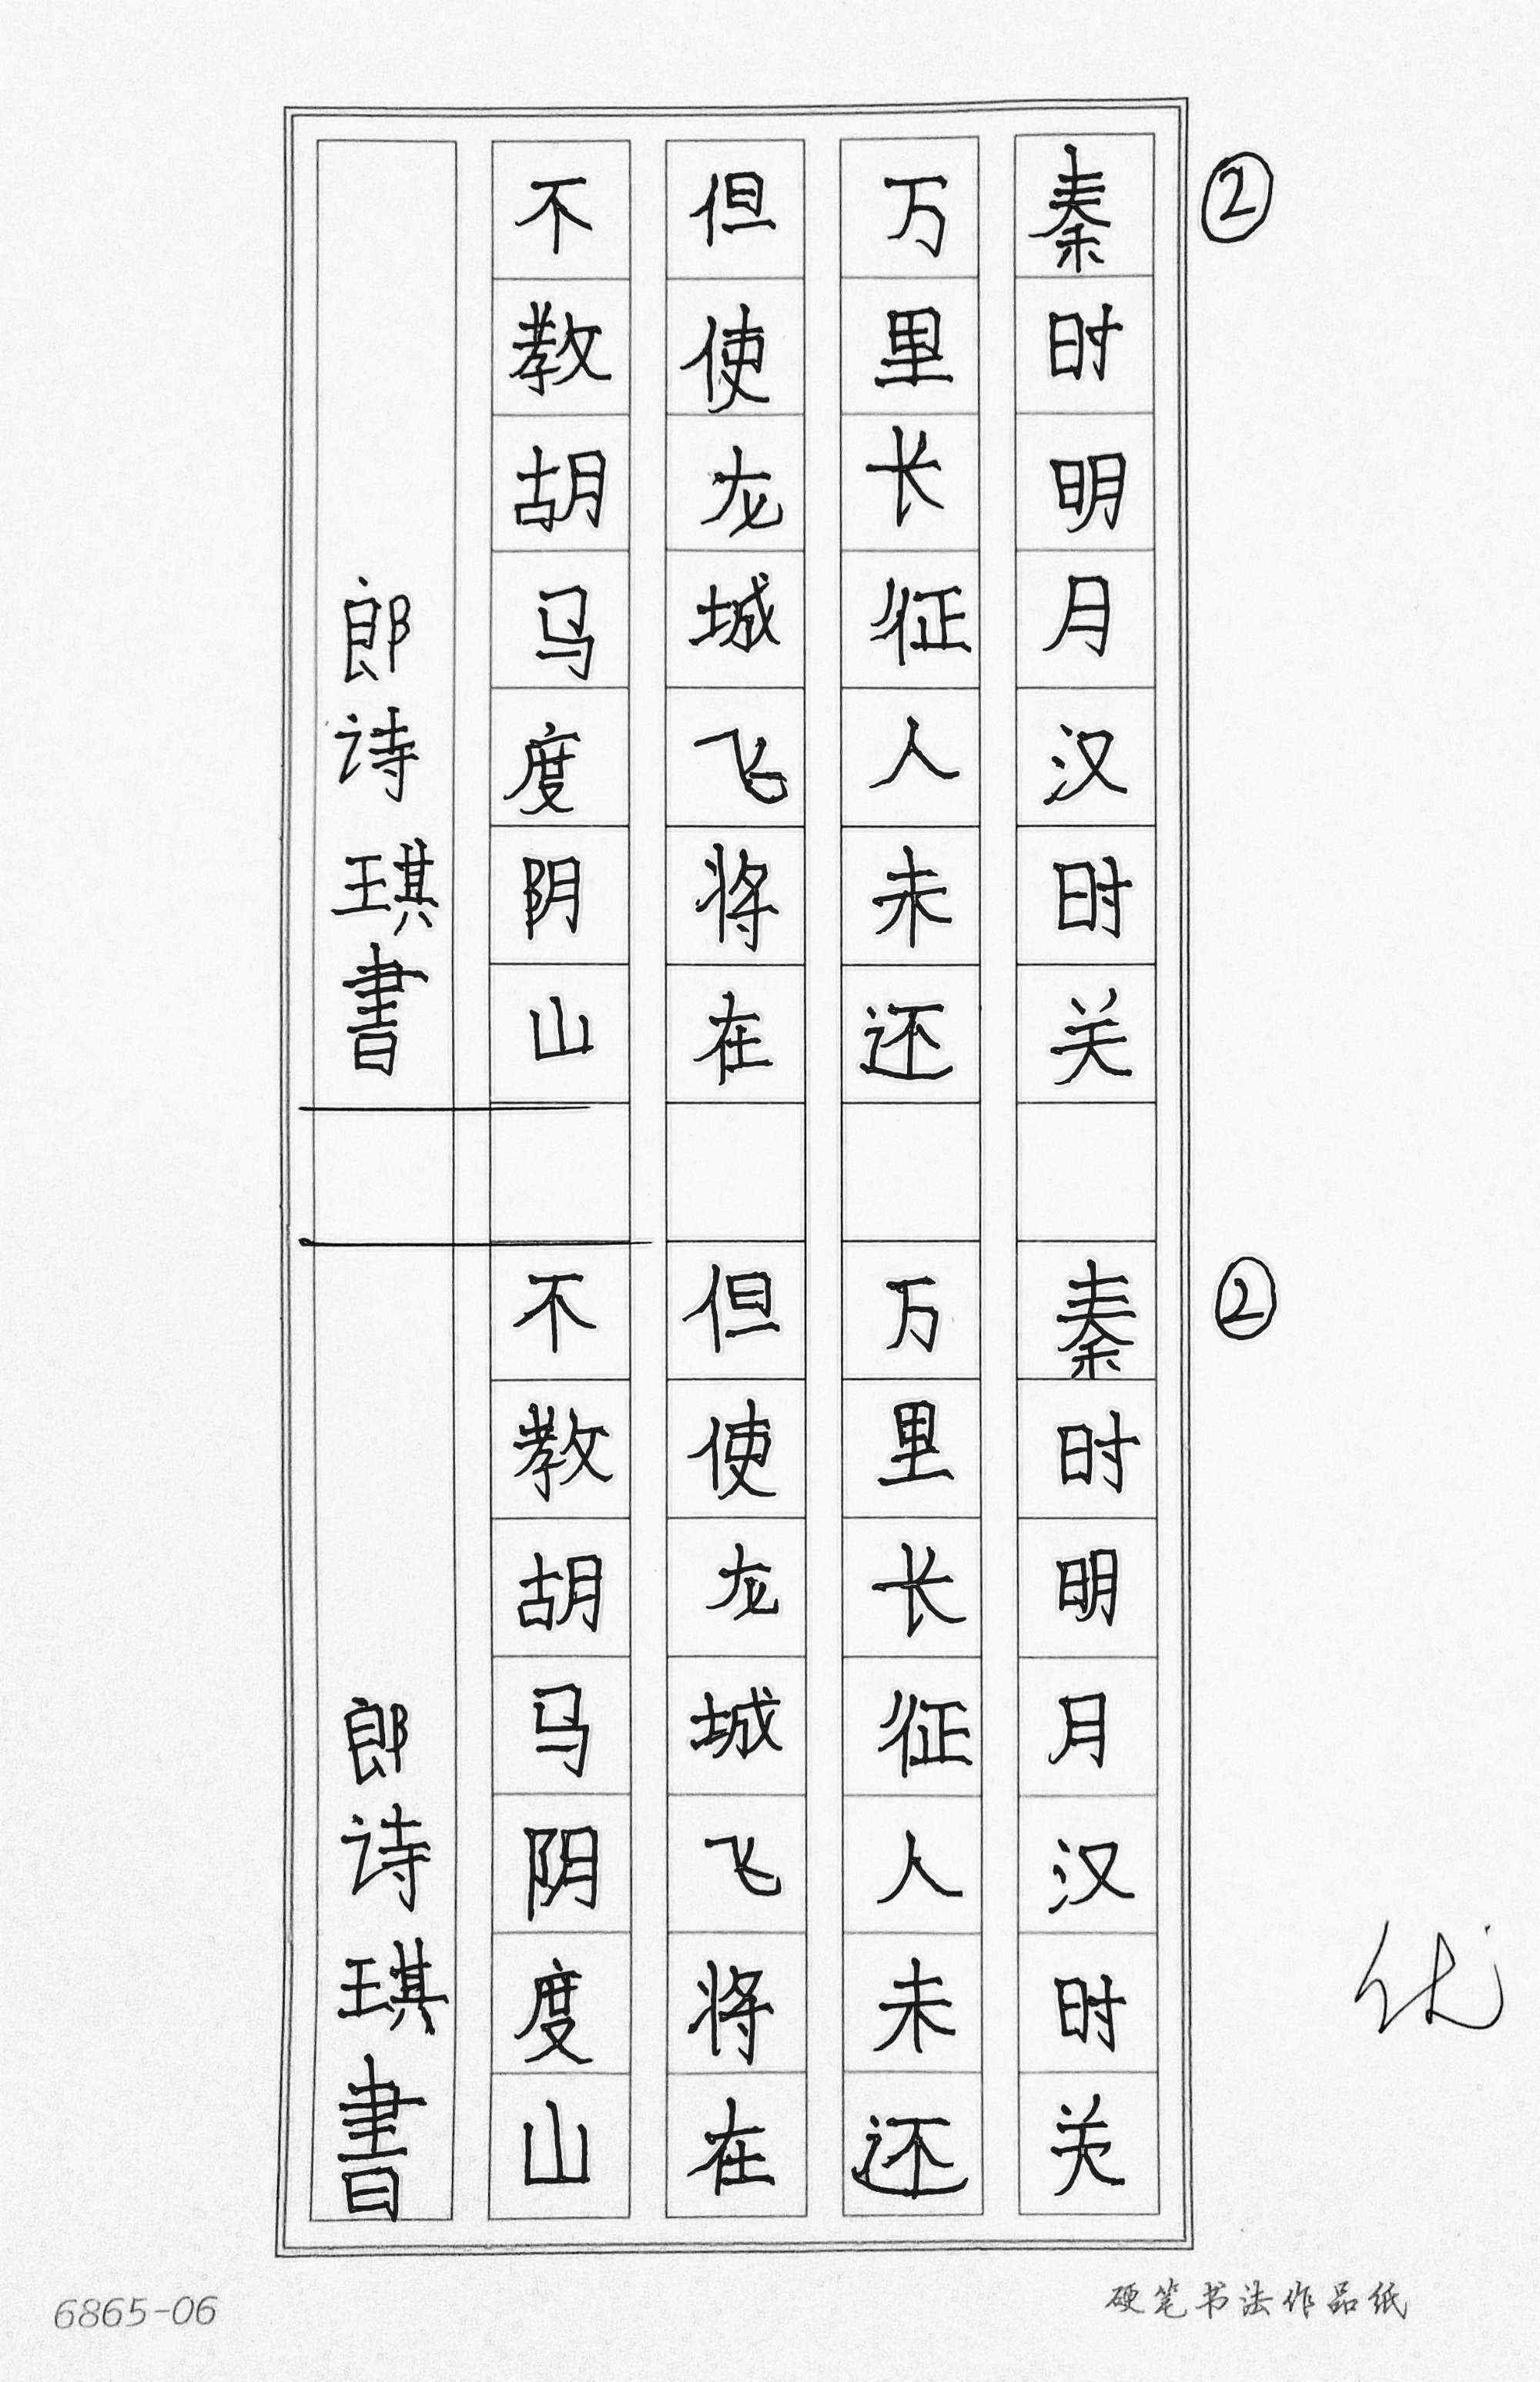 ②
秦时明月汉时关
万里长征人未还
但使龙城飞将在
不教胡马度阴山
郎诗琪書
②
秦时明月汉时关
万里长征人未还
但使龙城飞将在
不教胡马阴度山
郎诗琪書
优
6865-06
硬笔书法作品纸